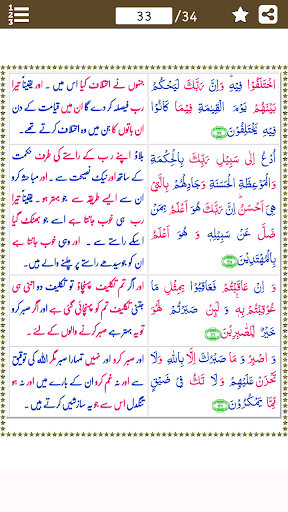 33 /34
1
2
3
اخْتَلَفُوْا فِيْهِ ؕ وَاِنَّ رَبَّكَ لَيَحْكُمُ
بَيْنَهُمْ يَوْمَ الْقِيٰمَةِ فِيْمَا كَانُوْا
فِيْهِ يَخْتَلِفُوْنَ
جنہوں نے اختلاف کیا اس میں ۔ اور یقیناً تیرا
رب فیصلہ کر دے گا ان میں قیامت کے دن
ان باتوں کا جن میں وہ اختلاف کرتے تھے۔
اُدْعُ اِلٰى سَبِيْلِ رَبِّكَ بِالْحِكْمَةِ
وَالْمَوْعِظَةِ الْحَسَنَةِ وَجَادِلْهُمْ بِالَّتِيْ
هِيَ اَحْسَنُ ؕ اِنَّ رَبَّكَ هُوَ اَعْلَمُ بِمَنْ
ضَلَّ عَنْ سَبِيْلِهٖ وَ هُوَ اَعْلَمُ
بِالْمُهْتَدِيْنَ
بلاؤ اپنے رب کے راستے کی طرف حکمت
کے ساتھ اور نیک نصیحت سے ۔ اور مباحثہ کرو
ان سے ایسے طریقہ سے جو بہتر ہو ۔ یقیناً تیرا
رب ہی خوب جانتا ہے اسے جو بھٹک گیا
اسکے راستے سے ۔ اور وہی خوب جانتا ہے
ان کو جو سیدھے راستے پر چلنے والے ہیں۔
وَ اِنْ عَاقَبْتُمْ فَعَاقِبُوْا بِمِثْلِ مَا
عُوْقِبْتُمْ بِهٖ ؕ وَ لَئِنْ صَبَرْتُمْ لَهُوَ
خَيْرٌ لِّلصّٰبِرِيْنَ
اور اگر تم تکلیف پہنچاؤ تو تکلیف دو اتنی ہی
جتنی تکلیف تم کو پہنچائی گئی ہے اور اگر صبر کرو
تو یہ بہتر ہے صبر کرنے والوں کے لئے ۔
وَ اصْبِرْ وَ مَا صَبْرُكَ اِلَّا بِاللّٰهِ وَلَا
تَحْزَنْ عَلَيْهِمْ وَ لَا تَكُ فِيْ ضَيْقٍ
مِّمَّا يَمْكُرُوْنَ
اور صبر کرو اور نہیں تمہارا صبر مگر اللہ کی توفیق
سے اور نہ غم کرو ان کے بارے میں اور نہ ہو
تنگدل اس سے جو یہ سازشیں کرتے ہیں ۔